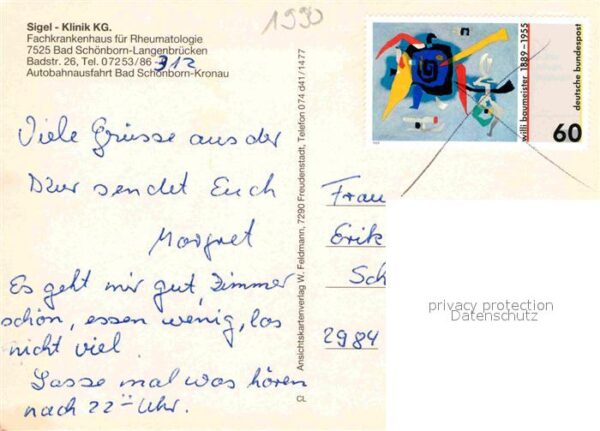 1990
Sigel - Klinik KG.
Fachkrankenhaus für Rheumatologie
7525 Bad Schönborn-Langenbrücken
Badstr. 26, Tel. 07253/86-312
Autobahnausfahrt Bad Schönborn-Kronau
willi baumeister 1889-1955
deutsche bundespost
60
Viele Grüsse aus der
Kur sendet Euch
Margret
Es geht mir gut, Zimmer
schön, essen wenig, los
nicht viel.
Lasse mal was hören
nach 22 Uhr.
Ansichtskartenverlag W. Feldmann, 7290 Freudenstadt, Telefon 074 41/14 77
CL
Frau
Erik
Sch
2984
privacy protection
Datenschutz